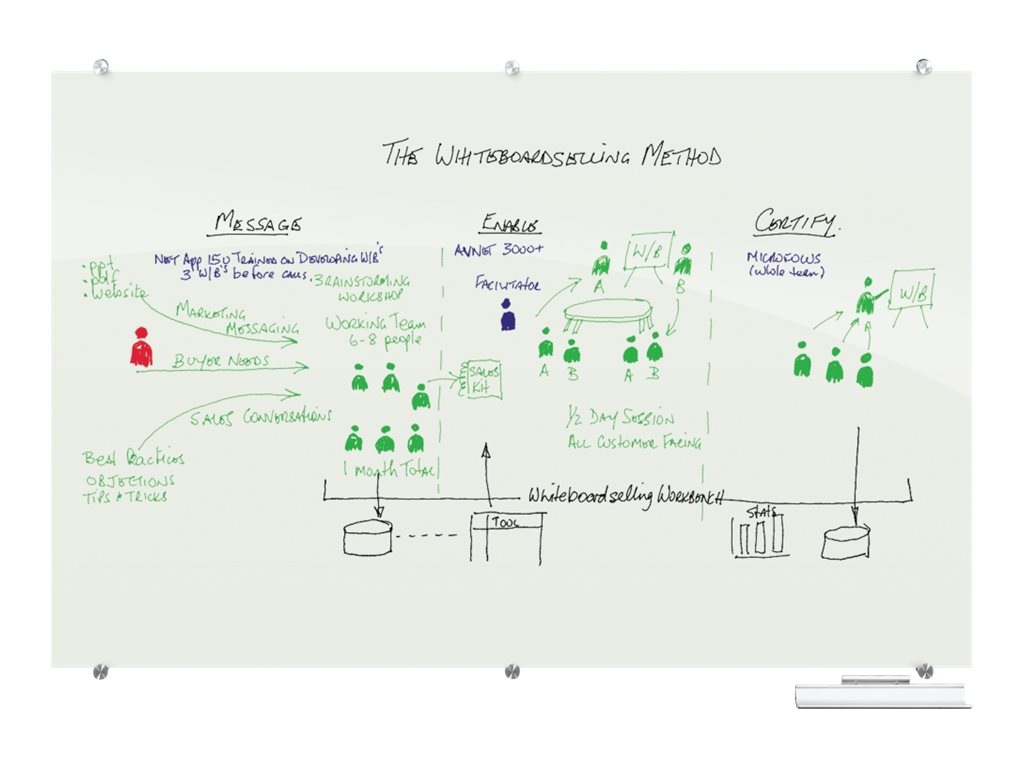 THE WHITEBOARDSELLING METHOD
MESSAGE
NET APP 150 TRAINED ON DEVELOPING W/B's
3 W/B's before calls.
.ppt
.pdf
.website
MARKETING
MESSAGING
BUYER NEEDS
SALES CONVERSATIONS
Best Practices
OBJECTIONS
TIPS & TRICKS
BRAINSTORMING
WORKSHOP
WORKING TEAM
6-8 people
1 month TOTAL
ENABLE
AVNET 3000+
FACILITATOR
SALES
KIT
W/B
A
B
A
B
A
B
1/2 DAY SESSION
ALL CUSTOMER FACING
CERTIFY.
MICROFOCUS
(Whole team)
W/B
A
Whiteboardselling WORKBENCH
TOOL
STATS